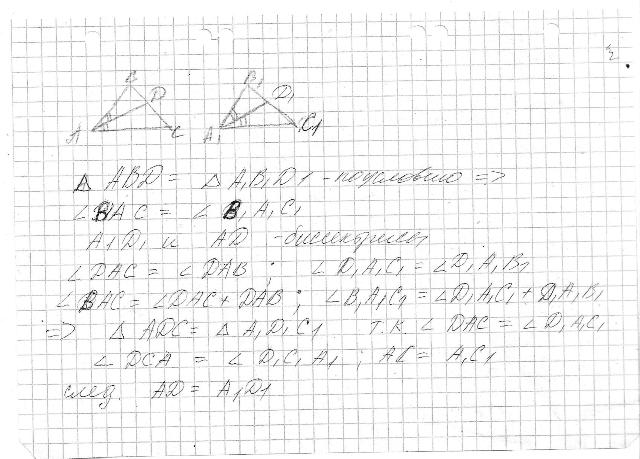 B B₁
D D₁
A C A₁ C₁
△ ABD = △ A₁B₁D₁ - по условию =>
∠BAC = ∠B₁A₁C₁
A₁D₁ и AD - биссектрисы
∠DAC = ∠DAB ; ∠D₁A₁C₁ = ∠D₁A₁B₁
∠BAC = ∠DAC + DAB ; ∠B₁A₁C₁ = ∠D₁A₁C₁ + D₁A₁B₁
=> △ ADC = △ A₁D₁C₁ т.к. ∠DAC = ∠D₁A₁C₁
∠DCA = ∠D₁C₁A₁ ; AC = A₁C₁
след. AD = A₁D₁